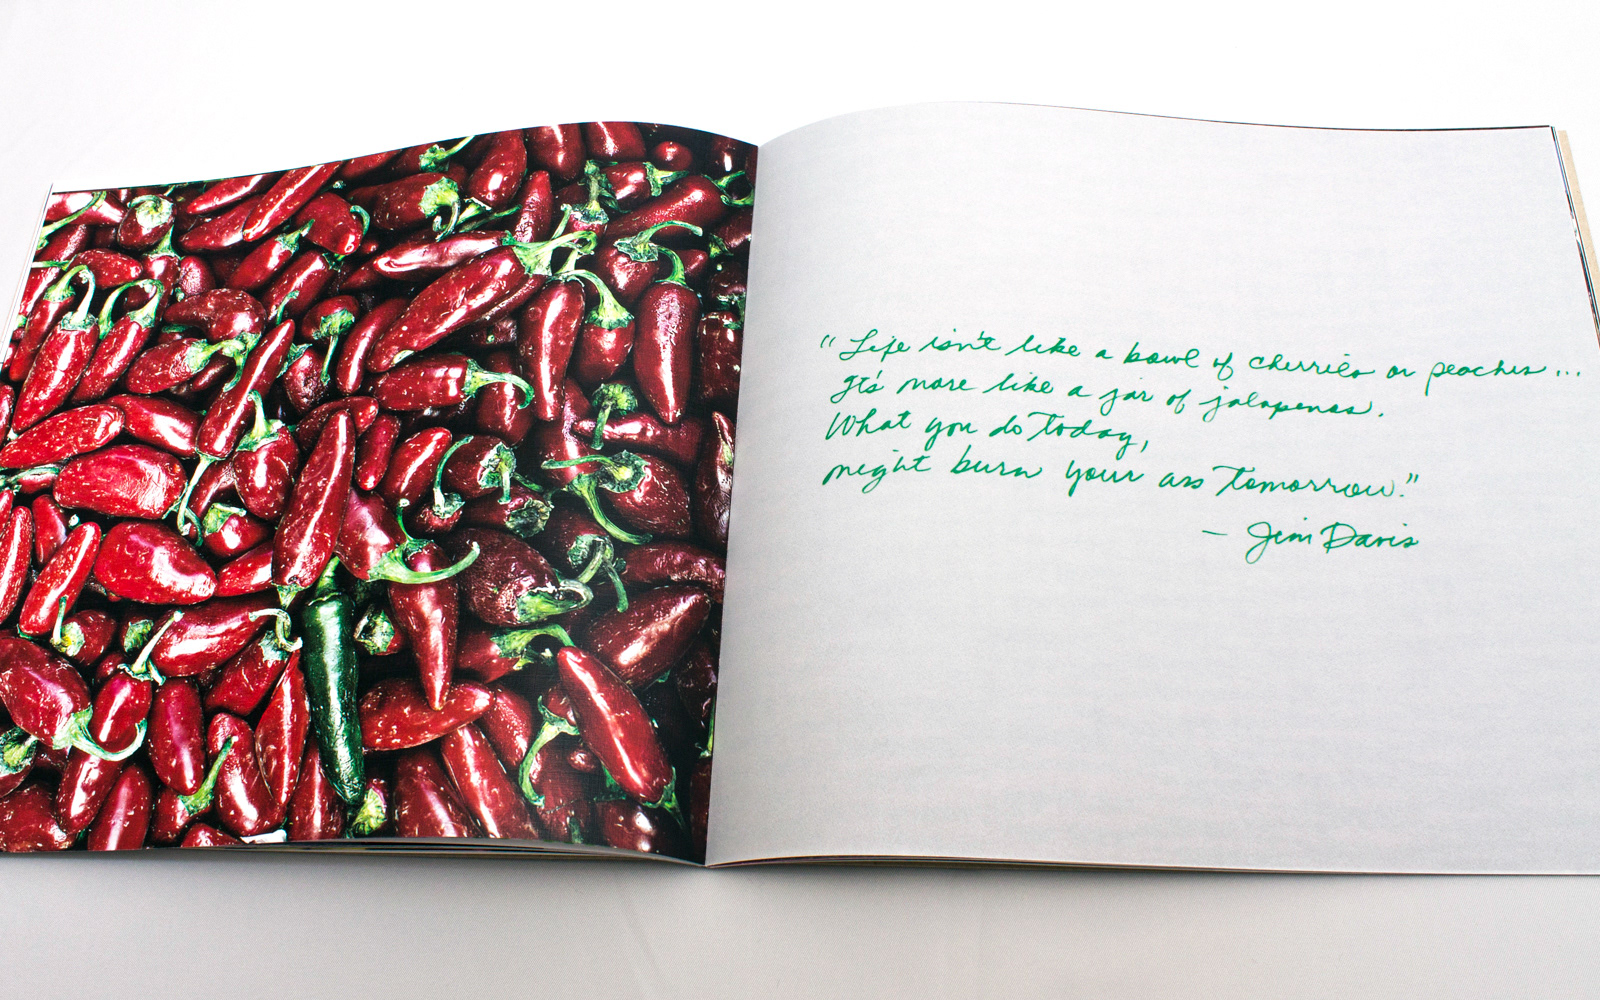 "Life isn't like a bowl of cherries or peaches...
It's more like a jar of jalapenos.
What you do today,
might burn your ass tomorrow."
- Jim Davis